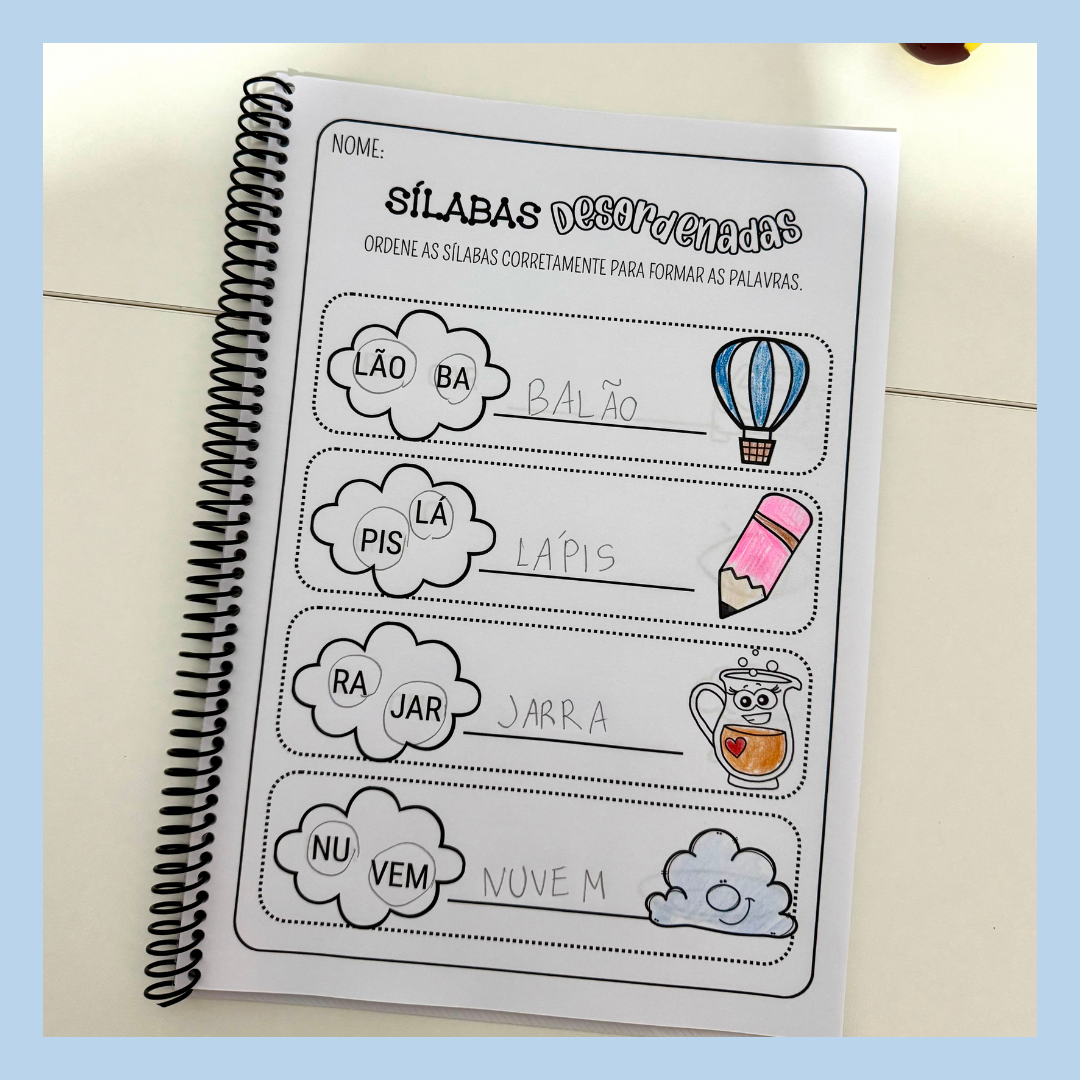 NOME:
SÍLABAS Desordenadas
ORDENE AS SÍLABAS CORRETAMENTE PARA FORMAR AS PALAVRAS.
LÃO BA BALÃO
PIS LÁ LÁPIS
RA JAR JARRA
NU VEM NUVEM